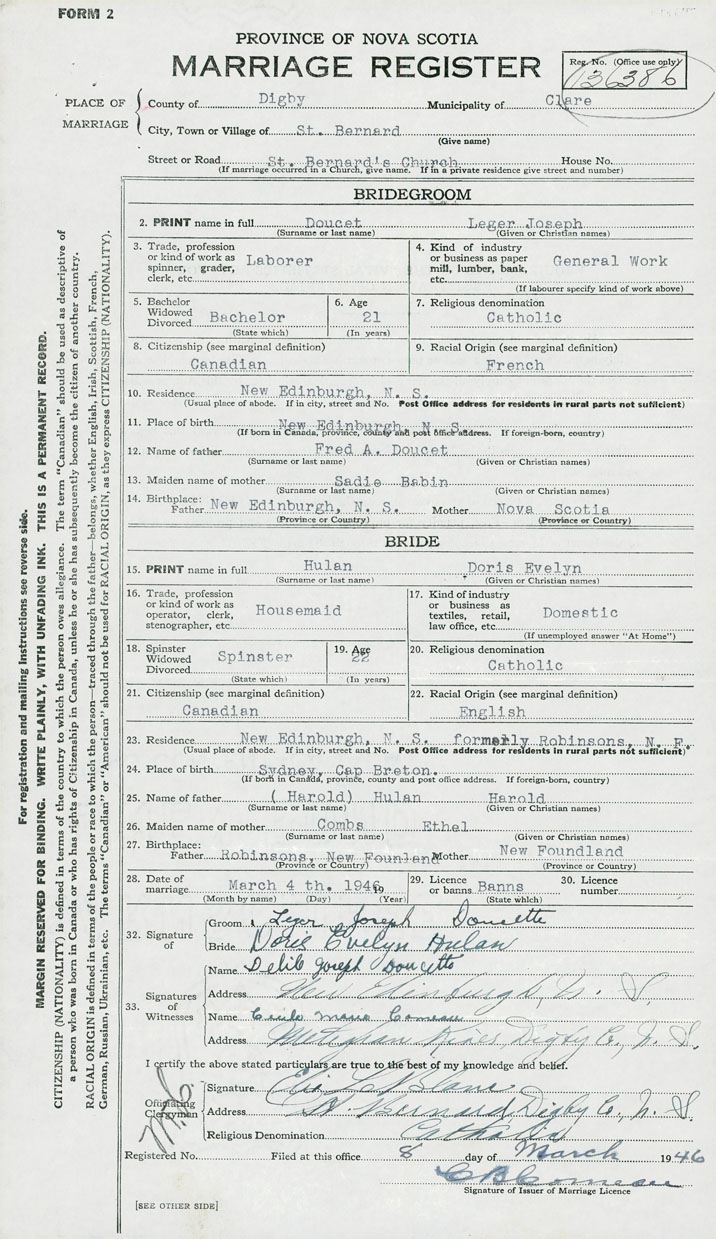 FORM 2
PROVINCE OF NOVA SCOTIA
MARRIAGE REGISTER
Reg. No. (Office use only)
136386
PLACE OF MARRIAGE
County of Digby Municipality of Clare
City, Town or Village of St. Bernard
(Give name)
Street or Road St. Bernard's Church House No.
(If marriage occurred in a Church, give name. If in a private residence give street and number)
BRIDEGROOM
2. PRINT name in full Doucet Leger Joseph
(Surname or last name) (Given or Christian names)
3. Trade, profession or kind of work as spinner, grader, clerk, etc. Laborer
4. Kind of industry or business as paper mill, lumber, bank, etc. General Work
(If labourer specify kind of work above)
5. Bachelor Widowed Divorced Bachelor
(State which)
6. Age 21
(In years)
7. Religious denomination
Catholic
8. Citizenship (see marginal definition)
Canadian
9. Racial Origin (see marginal definition)
French
10. Residence New Edinburgh, N. S.
(Usual place of abode. If in city, street and No. Post Office address for residents in rural parts not sufficient)
11. Place of birth New Edinburgh, N. S.
(If born in Canada, province, county and post office address. If foreign-born, country)
12. Name of father Fred A. Doucet
(Surname or last name) (Given or Christian names)
13. Maiden name of mother Sadie Babin
(Surname or last name) (Given or Christian names)
14. Birthplace: Father New Edinburgh, N. S. Mother Nova Scotia
(Province or Country) (Province or Country)
BRIDE
15. PRINT name in full Hulan Doris Evelyn
(Surname or last name) (Given or Christian names)
16. Trade, profession or kind of work as operator, clerk, stenographer, etc. Housemaid
17. Kind of industry or business as textiles, retail, law office, etc. Domestic
(If unemployed answer "At Home")
18. Spinster Widowed Divorced Spinster
(State which)
19. Age 22
(In years)
20. Religious denomination
Catholic
21. Citizenship (see marginal definition)
Canadian
22. Racial Origin (see marginal definition)
English
23. Residence New Edinburgh, N. S. formerly Robinsons, N. F.
(Usual place of abode. If in city, street and No. Post Office address for residents in rural parts not sufficient)
24. Place of birth Sydney, Cap Breton.
(If born in Canada, province, county and post office address. If foreign-born, country)
25. Name of father ( Harold) Hulan Harold
(Surname or last name) (Given or Christian names)
26. Maiden name of mother Combs Ethel
(Surname or last name) (Given or Christian names)
27. Birthplace: Father Robinsons, New Founland Mother New Foundland
(Province or Country) (Province or Country)
28. Date of marriage March 4 th. 1946 19
(Month by name) (Day) (Year)
29. Licence or banns Banns
(State which)
30. Licence number
32. Signature of
Groom Leger Joseph Doucette
Bride Doris Evelyn Hulan
33. Signatures of Witnesses
Name Delib Joseph Doucette
Address New Edinburgh, N. S.
Name Cecile Marie Comeau
Address Meteghan River Digby Co., N. S.
I certify the above stated particulars are true to the best of my knowledge and belief.
Officiating Clergyman
Signature LeBlanc
Address St. Bernard, Digby Co., N. S.
Religious Denomination Catholic
Registered No. Filed at this office 8 day of March 1946
C B Comeau
Signature of Issuer of Marriage Licence
[SEE OTHER SIDE]
For registration and mailing instructions see reverse side.
MARGIN RESERVED FOR BINDING. WRITE PLAINLY, WITH UNFADING INK. THIS IS A PERMANENT RECORD.
CITIZENSHIP (NATIONALITY) is defined in terms of the country to which the person owes allegiance. The term "Canadian" should be used as descriptive of
a person who was born in Canada or who has rights of Citizenship in Canada, unless he or she has subsequently become the citizen of another country.
RACIAL ORIGIN is defined in terms of the people or race to which the person—traced through the father—belongs, whether English, Irish, Scottish, French,
German, Russian, Ukrainian, etc. The terms "Canadian" or "American" should not be used for RACIAL ORIGIN, as they express CITIZENSHIP (NATIONALITY).